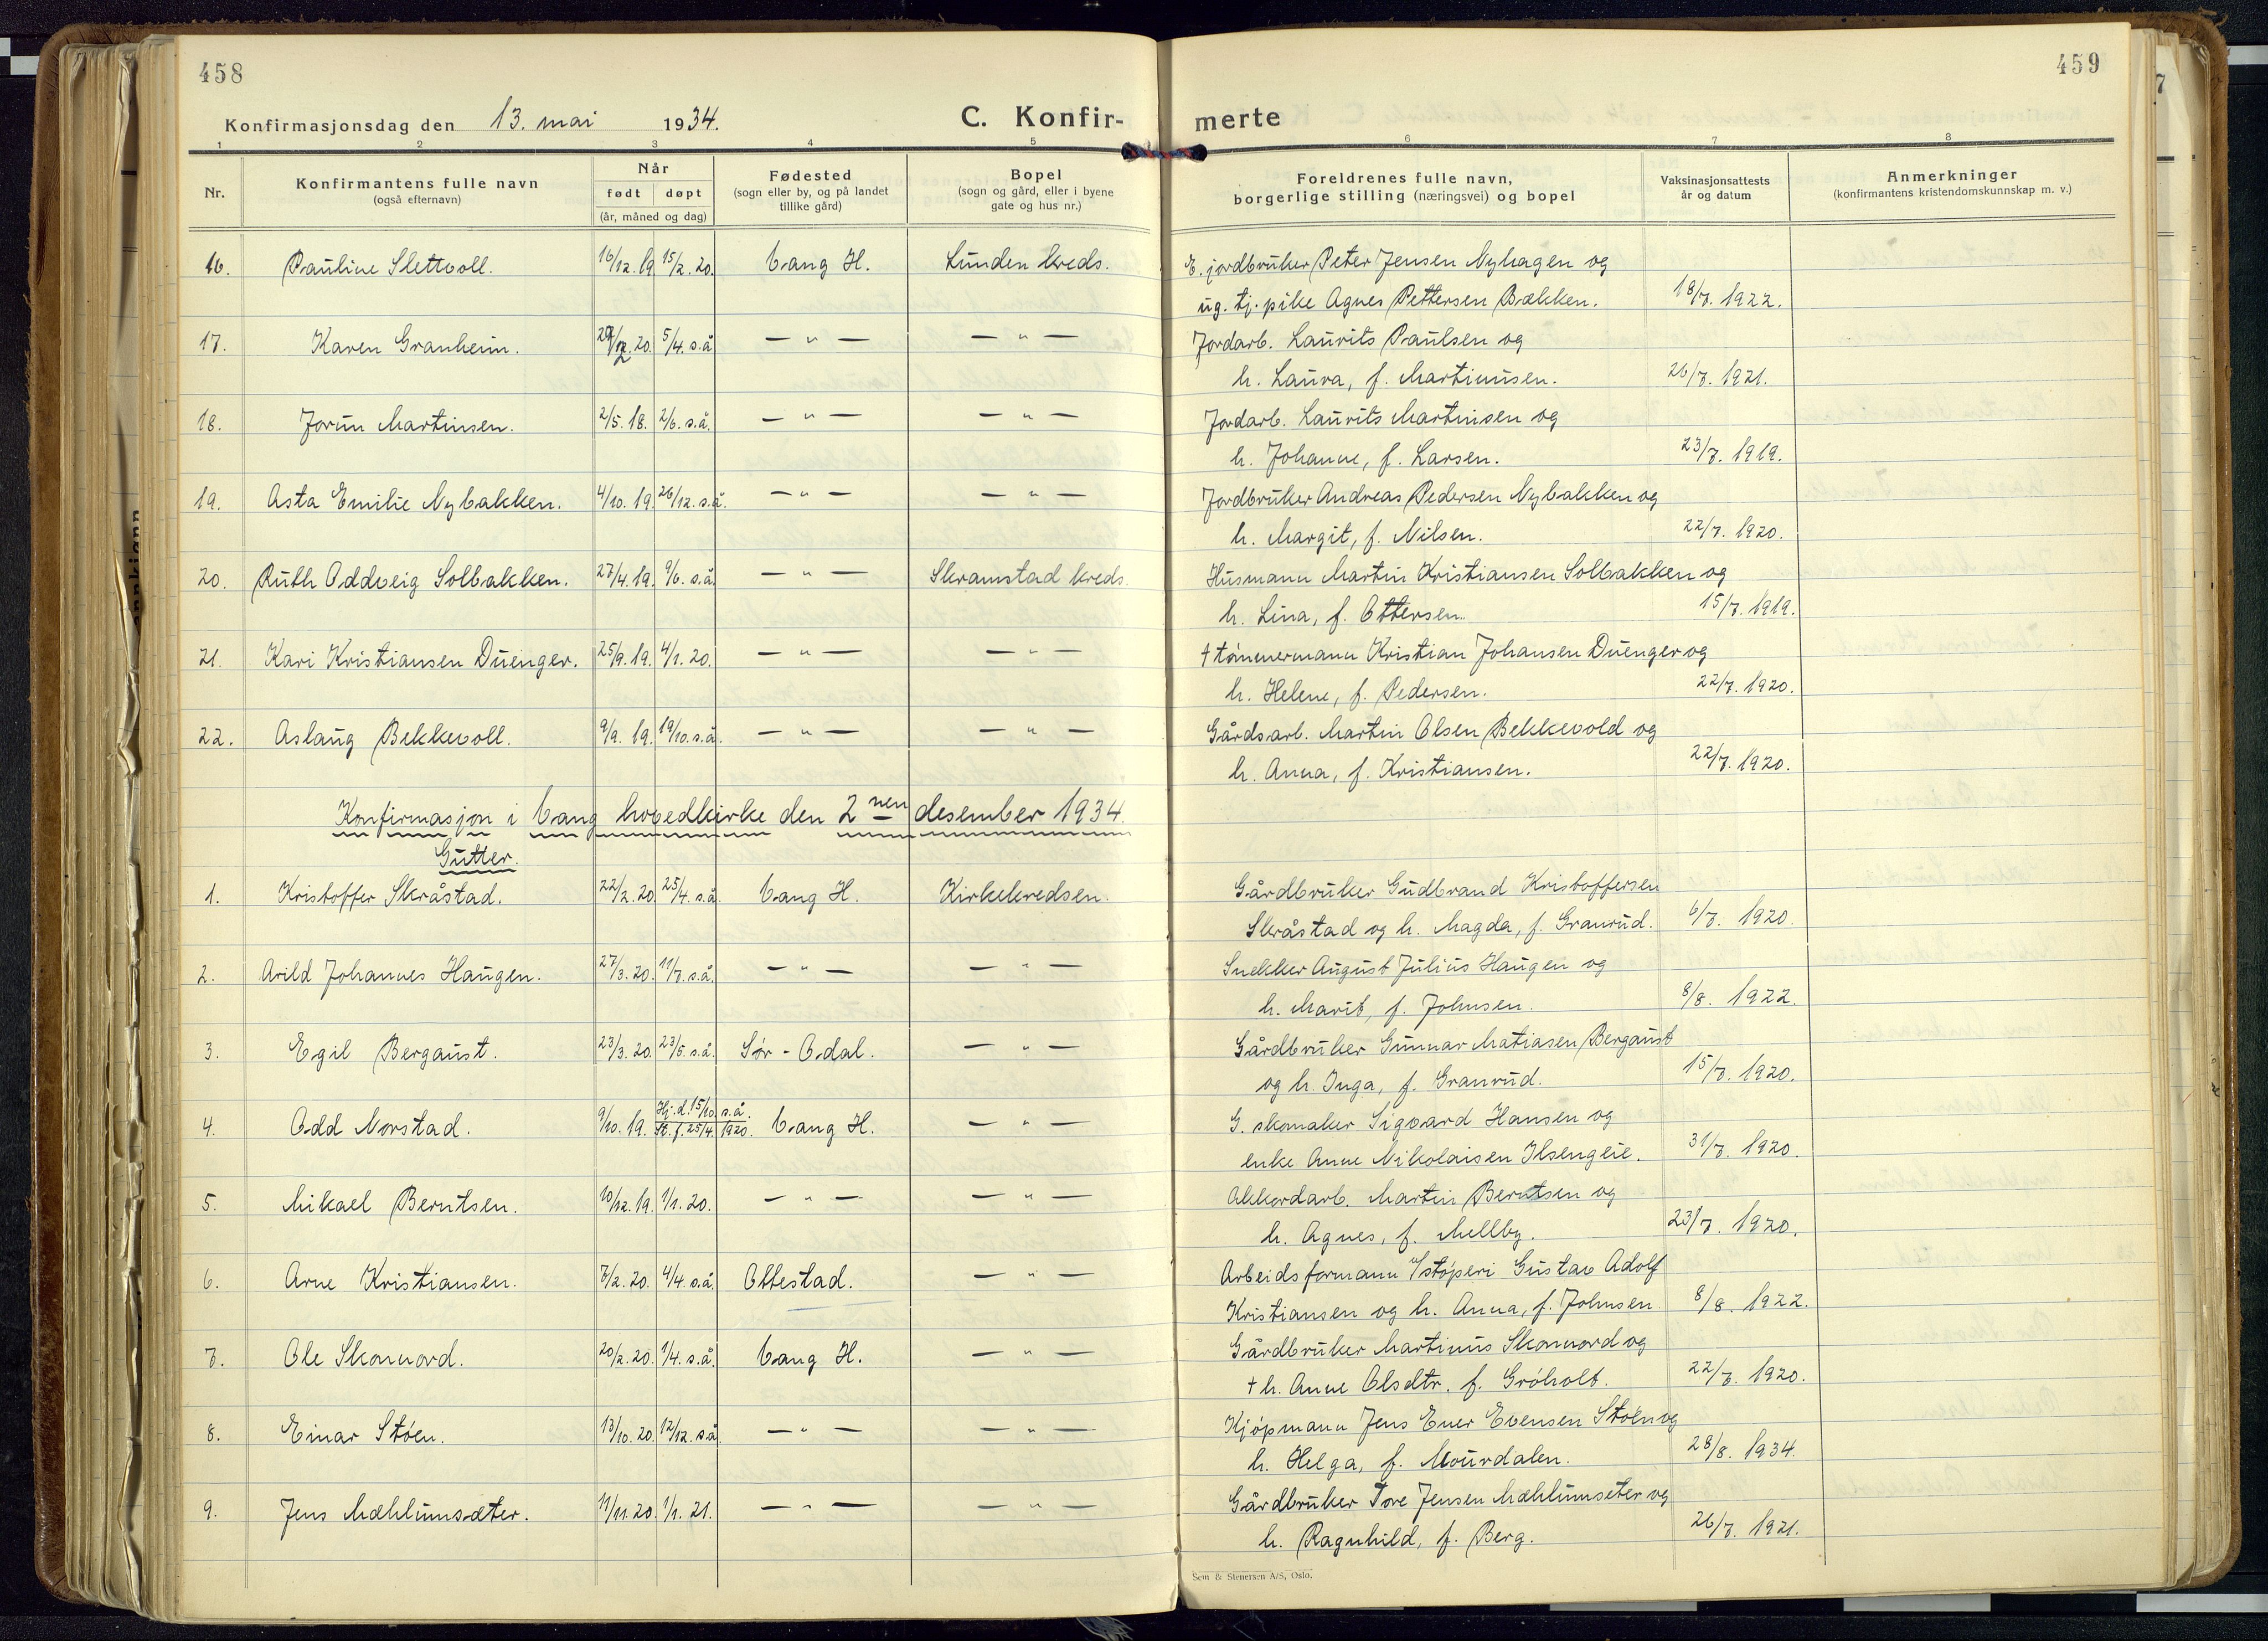 458
459
Konfirmasjonsdag den 13. mai 1934.
C. Konfir-
merte
1 2 3 4 5 6 7 8
Nr.
Konfirmantens fulle navn
(også efternavn)
Når
født døpt
(år, måned og dag)
Fødested
(sogn eller by, og på landet
tillike gård)
Bopel
(sogn og gård, eller i byene
gate og hus nr.)
Foreldrenes fulle navn,
borgerlige stilling (næringsvei) og bopel
Vaksinasjonsattests
år og datum
Anmerkninger
(konfirmantens kristendomskunnskap m. v.)
16. Pauline Slettvoll. 16/12. 19 15/2. 20. Vang H. Lunden kreds. E. jordbruker Peter Jensen Nyhagen og
ug. tj. pike Agnes Pettersen Bækken. 18/7. 1922.
17. Karen Granheim. 20. 5/4. s.å — " — — " — Jordarb. Laurits Paulsen og
h. Laura, f. Martinusen. 26/7. 1921.
18. Jorun Martinsen. 2/5. 18. 2/6. s.å. — " — — " — Jordarb. Laurits Martinsen og
h. Johanne, f. Larsen. 23/7. 1919.
19. Asta Emilie Nybakken. 4/10. 19. 26/12. s.å. — " — — " — Jordbruker Andreas Pedersen Nybakken og
h. Margit, f. Nilsen. 22/7. 1920.
20. Ruth Oddveig Solbakken. 27/4. 19. 9/6. s.å. — " — Skramstad kreds. Husmann Martin Kristiansen Solbakken og
h. Lina, f. Ottersen. 15/7. 1919.
21. Kari Kristiansen Duenger. 25/9. 19. 4/1. 20. — " — — " — † tømmermann Kristian Johansen Duenger og
h. Helene, f. Pedersen. 22/7. 1920.
22. Aslaug Bekkevoll. 9/9. 19. 19/10. s.å. — " — — " — Gårdsarb. Martin Olsen Bekkevold og
h. Anna, f. Kristiansen. 22/7. 1920.
Konfirmasjon i Vang hovedkirke den 2nen desember 1934.
Gutter.
1. Kristoffer Skråstad. 22/2. 20. 25/4. s.å. Vang H. Kirkekredsen. Gårdbruker Gudbrand Kristoffersen
Skråstad og h. Magda, f. Granrud. 6/7. 1920.
2. Arild Johannes Haugen. 27/3. 20. 11/7. s.å. — " — — " — Snekker August Julius Haugen og
h. Marit, f. Johnsen. 8/8. 1922.
3. Egil Bergaust. 23/3. 20. 23/5. s.å. Sør-Odal. — " — Gårdbruker Gunnar Matiasen Bergaust
og h. Inga, f. Granrud. 15/7. 1920.
4. Odd Norstad. 9/10. 19. Hj. d. 15/10. s.å. St. f. 25/4. 1920. Vang H. — " — G. skomaker Sigvard Hansen og
enke Anne Nikolaisen Ilsengeie. 31/7. 1920.
5. Mikael Berntsen. 10/12. 19. 1/1. 20. — " — — " — Akkordarb. Martin Berntsen og
h. Agnes, f. Mellby. 23/7. 1920.
6. Arne Kristiansen. 7/2. 20. 4/4. s.å. Ottestad. — " — Arbeidsformann v/støperi Gustav Adolf
Kristiansen og h. Anna, f. Johnsen. 8/8. 1922.
7. Ole Skonnord. 20/2. 20. 1/4. s.å. Vang H. — " — Gårdbruker Martinus Skonnord og
† h. Anne Olsdtr. f. Grøholt. 22/7. 1920.
8. Einar Støen. 13/10. 20. 12/12. s.å. — " — — " — Kjøpmann Jens Ener Evensen Støen og
h. Helga, f. Mourdalen. 28/8. 1934.
9. Jens Mæhlumsæter. 11/11. 20. 1/1. 21. — " — — " — Gårdbruker Tore Jensen Mæhlumseter og
h. Ragnhild, f. Berg. 26/7. 1921.
Sem & Stenersen A/S, Oslo.